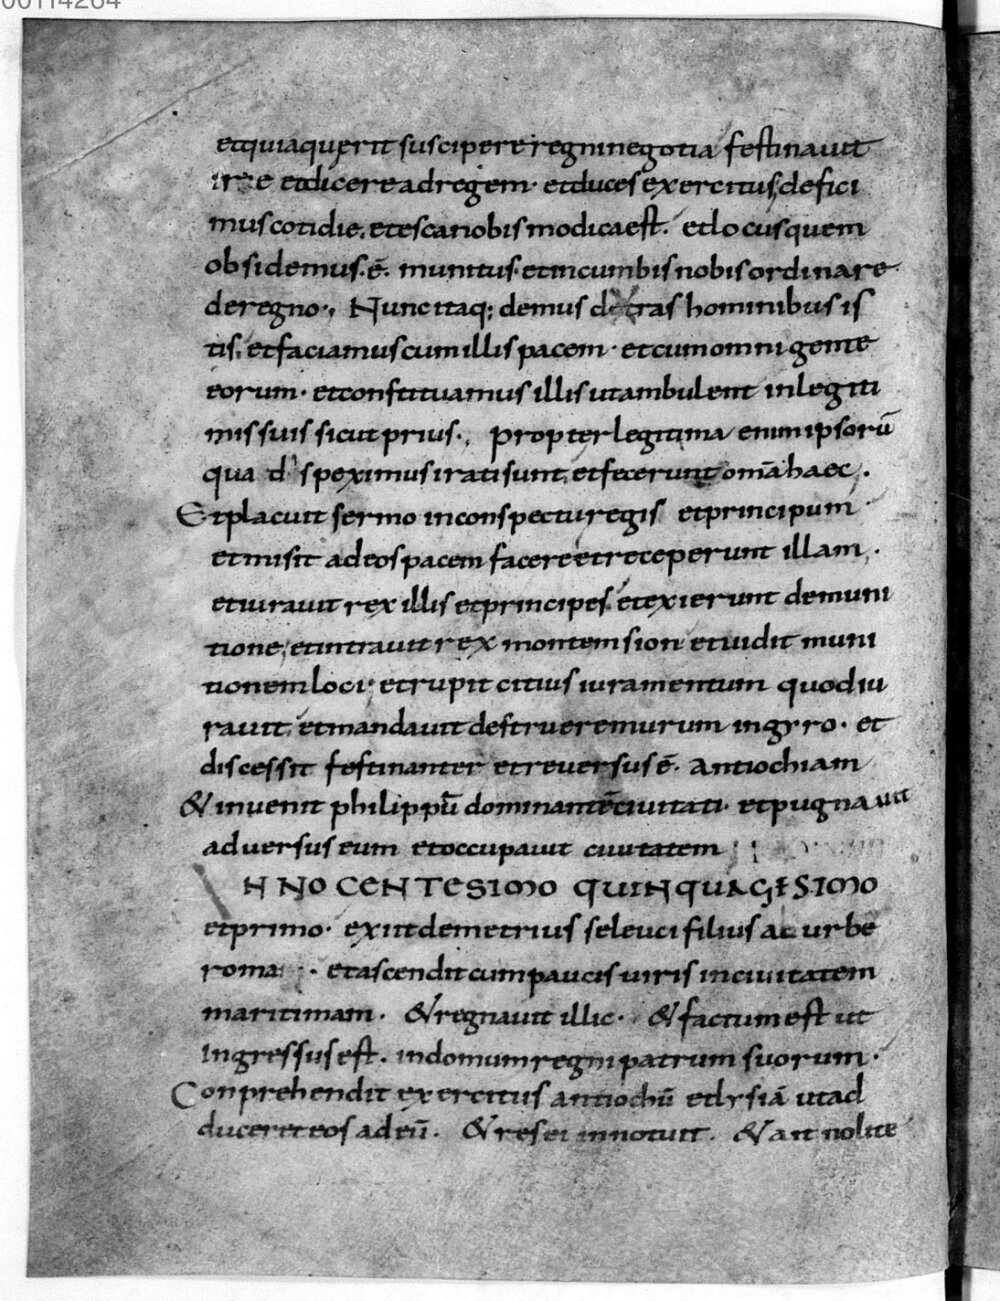 00114264
et quia querit suscipere regni negotia festinauit
ire et dicere ad regem · et duces exercitus, defici
mus cotidie, et esca nobis modica est. et locus quem
obsidemus · ē · munitus · et incumbit nobis ordinare
de regno ·, Nunc itaq; demus dextras hominibus is
tis, et faciamus cum illis pacem · et cum omni gente
eorum · et constituamus illis ut ambulent in legiti
mis suis sicut prius ·, propter legitima enim ipsorū
qua despeximus irati sunt, et fecerunt omīa haec,.
Et placuit sermo in conspectu regis et principum
et misit ad eos pacem facere et receperunt illam,.
et iurauit rex illis et principes, et exierunt de muni
tione, et intrauit rex montem sion et uidit muni
tionem loci · et rupit citius iuramentum quod iu
rauit, et mandauit destruere murum in gyro · et
discessit festinanter et reuersus ē · antiochiam
& inuenit philippū dominantē ciuitati · et pugnauit
aduersus eum et occupauit ciuitatem
NNO CENTESIMO QUINQUAGESIMO
et primo · exiit demetrius seleuci filius ab urbe
roma · et ascendit cum paucis uiris in ciuitatem
maritimam · & regnauit illic · & factum est ut
ingressus est · in domum regni patrum suorum ·
Conprehendit exercitus antiochū et lysiā ut ad
ducerent eos ad eū · & res ei innotuit · & ait nolite